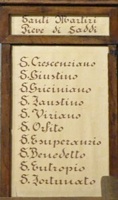 Santi Martiri
Pieve di Saddi
S. Crescenziano
S. Giustino
S. Griciniano
S. Faustino
S. Viriano
S. Orfito
S. Esuperanzio
S. Benedetto
S. Eutropio
S. Fortunato